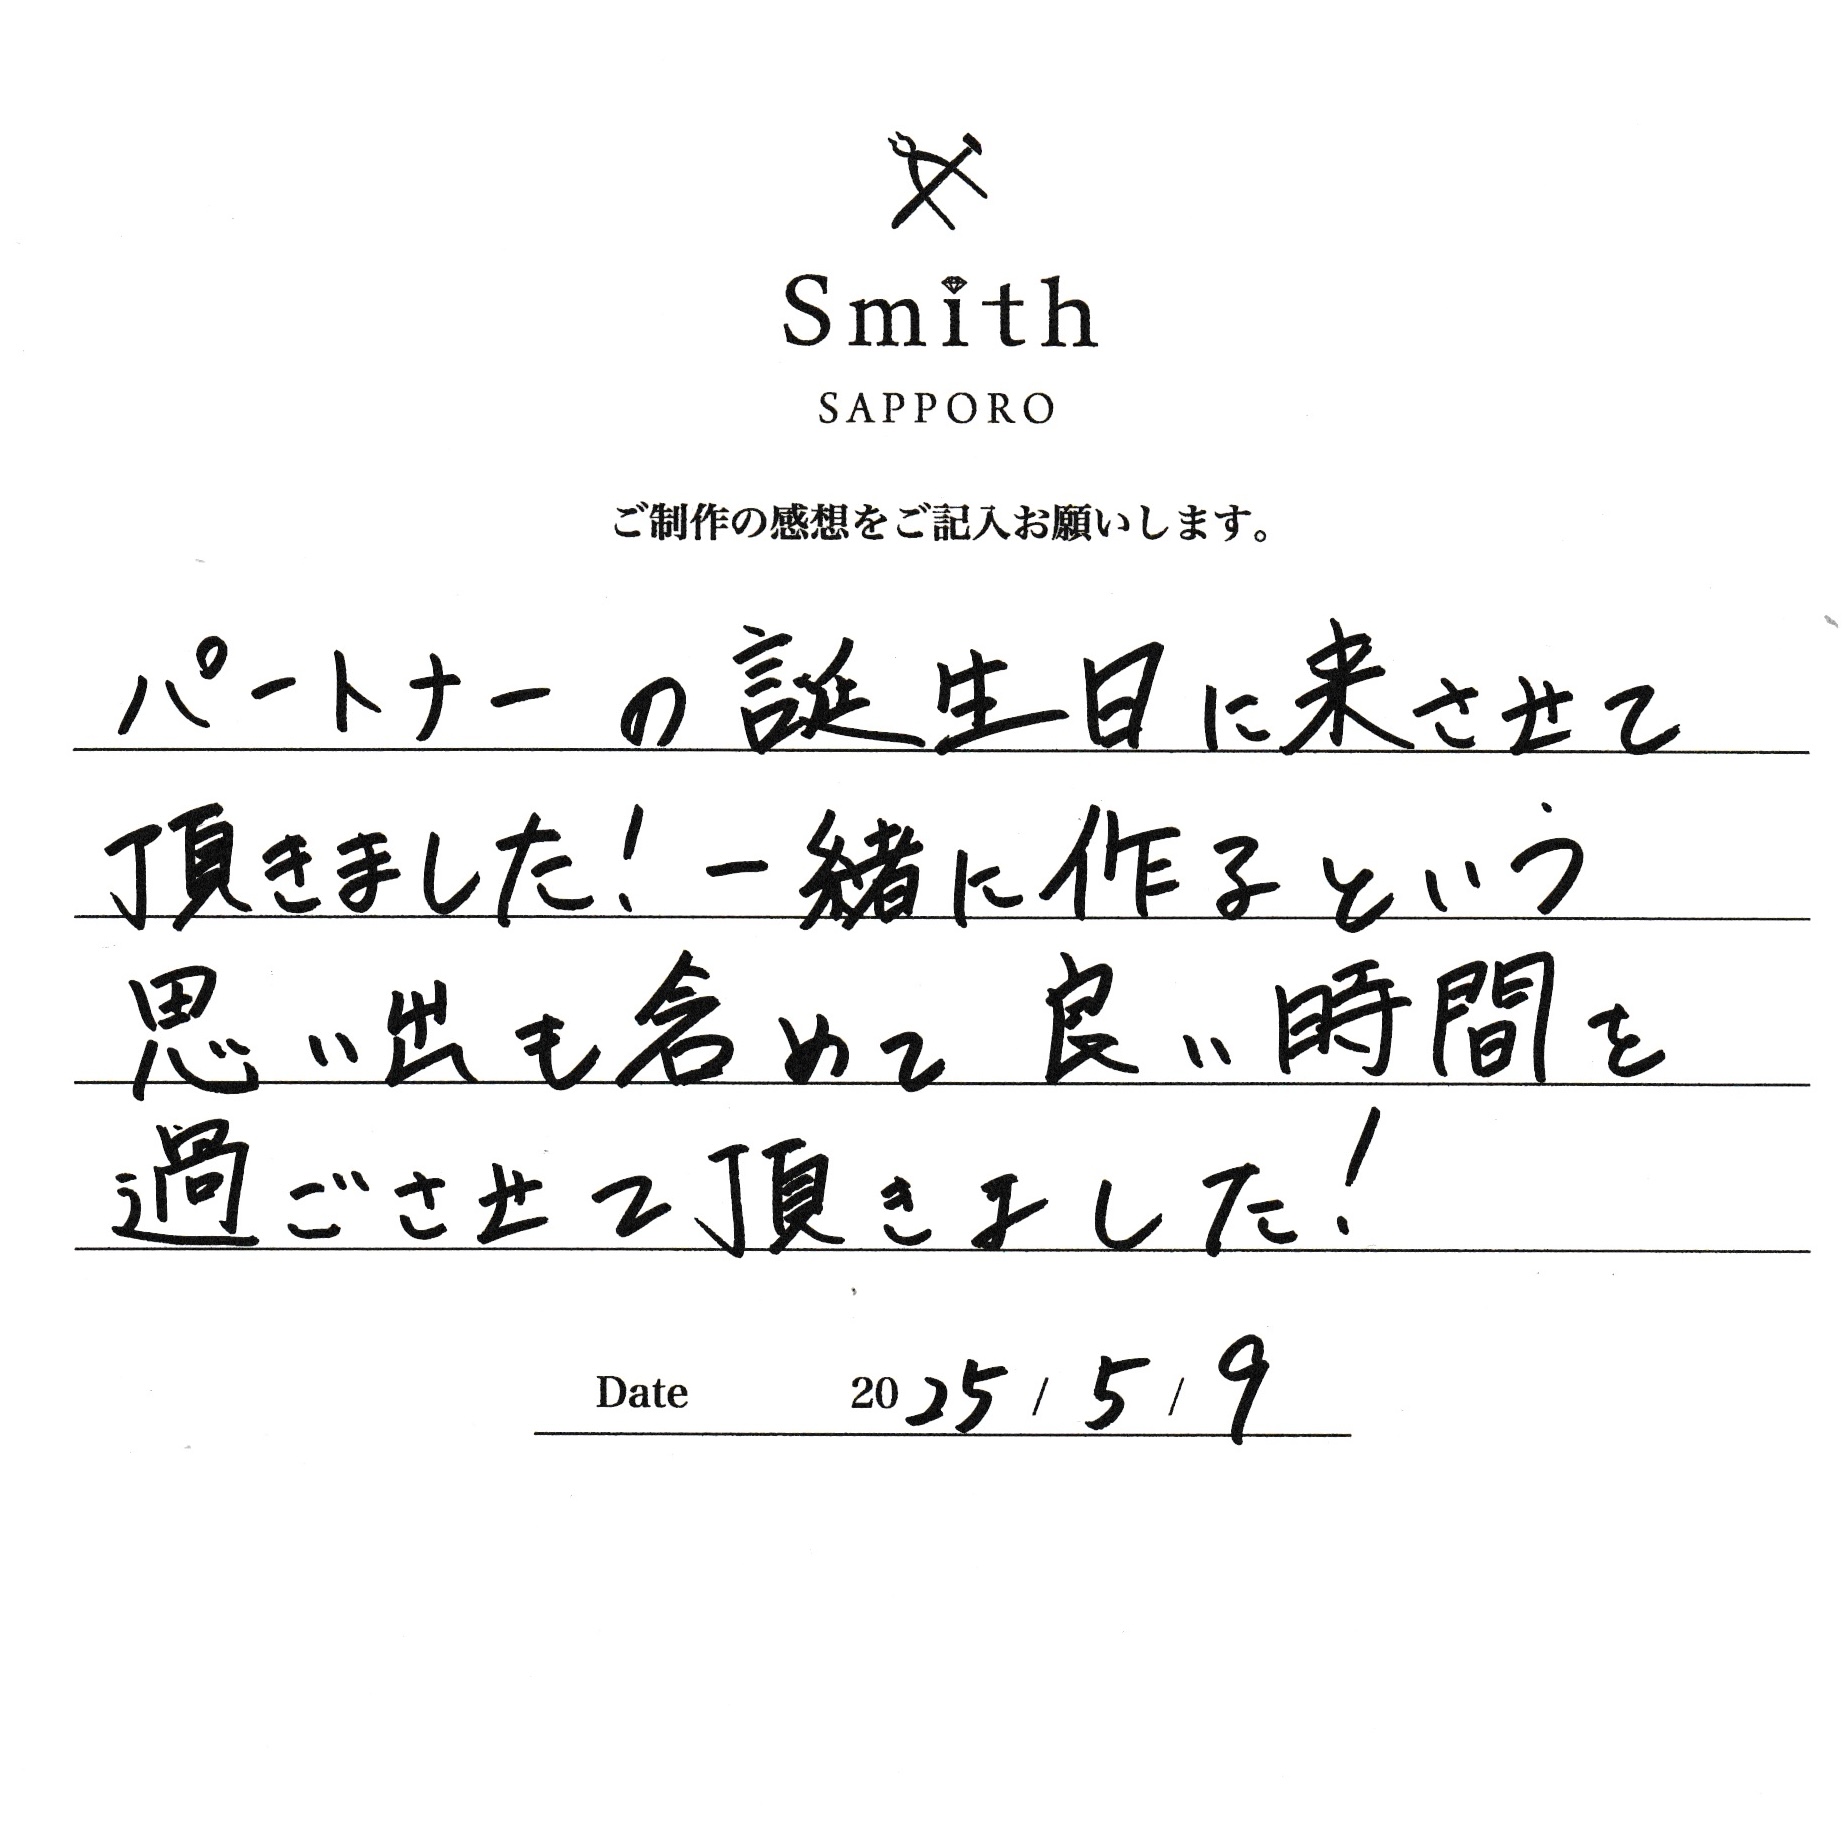 Smith
SAPPORO
ご制作の感想をご記入お願いします。
パートナーの誕生日に来させて
頂きました!一緒に作るという
思い出も含めて良い時間を
過ごさせて頂きました!
Date 2025/5/9